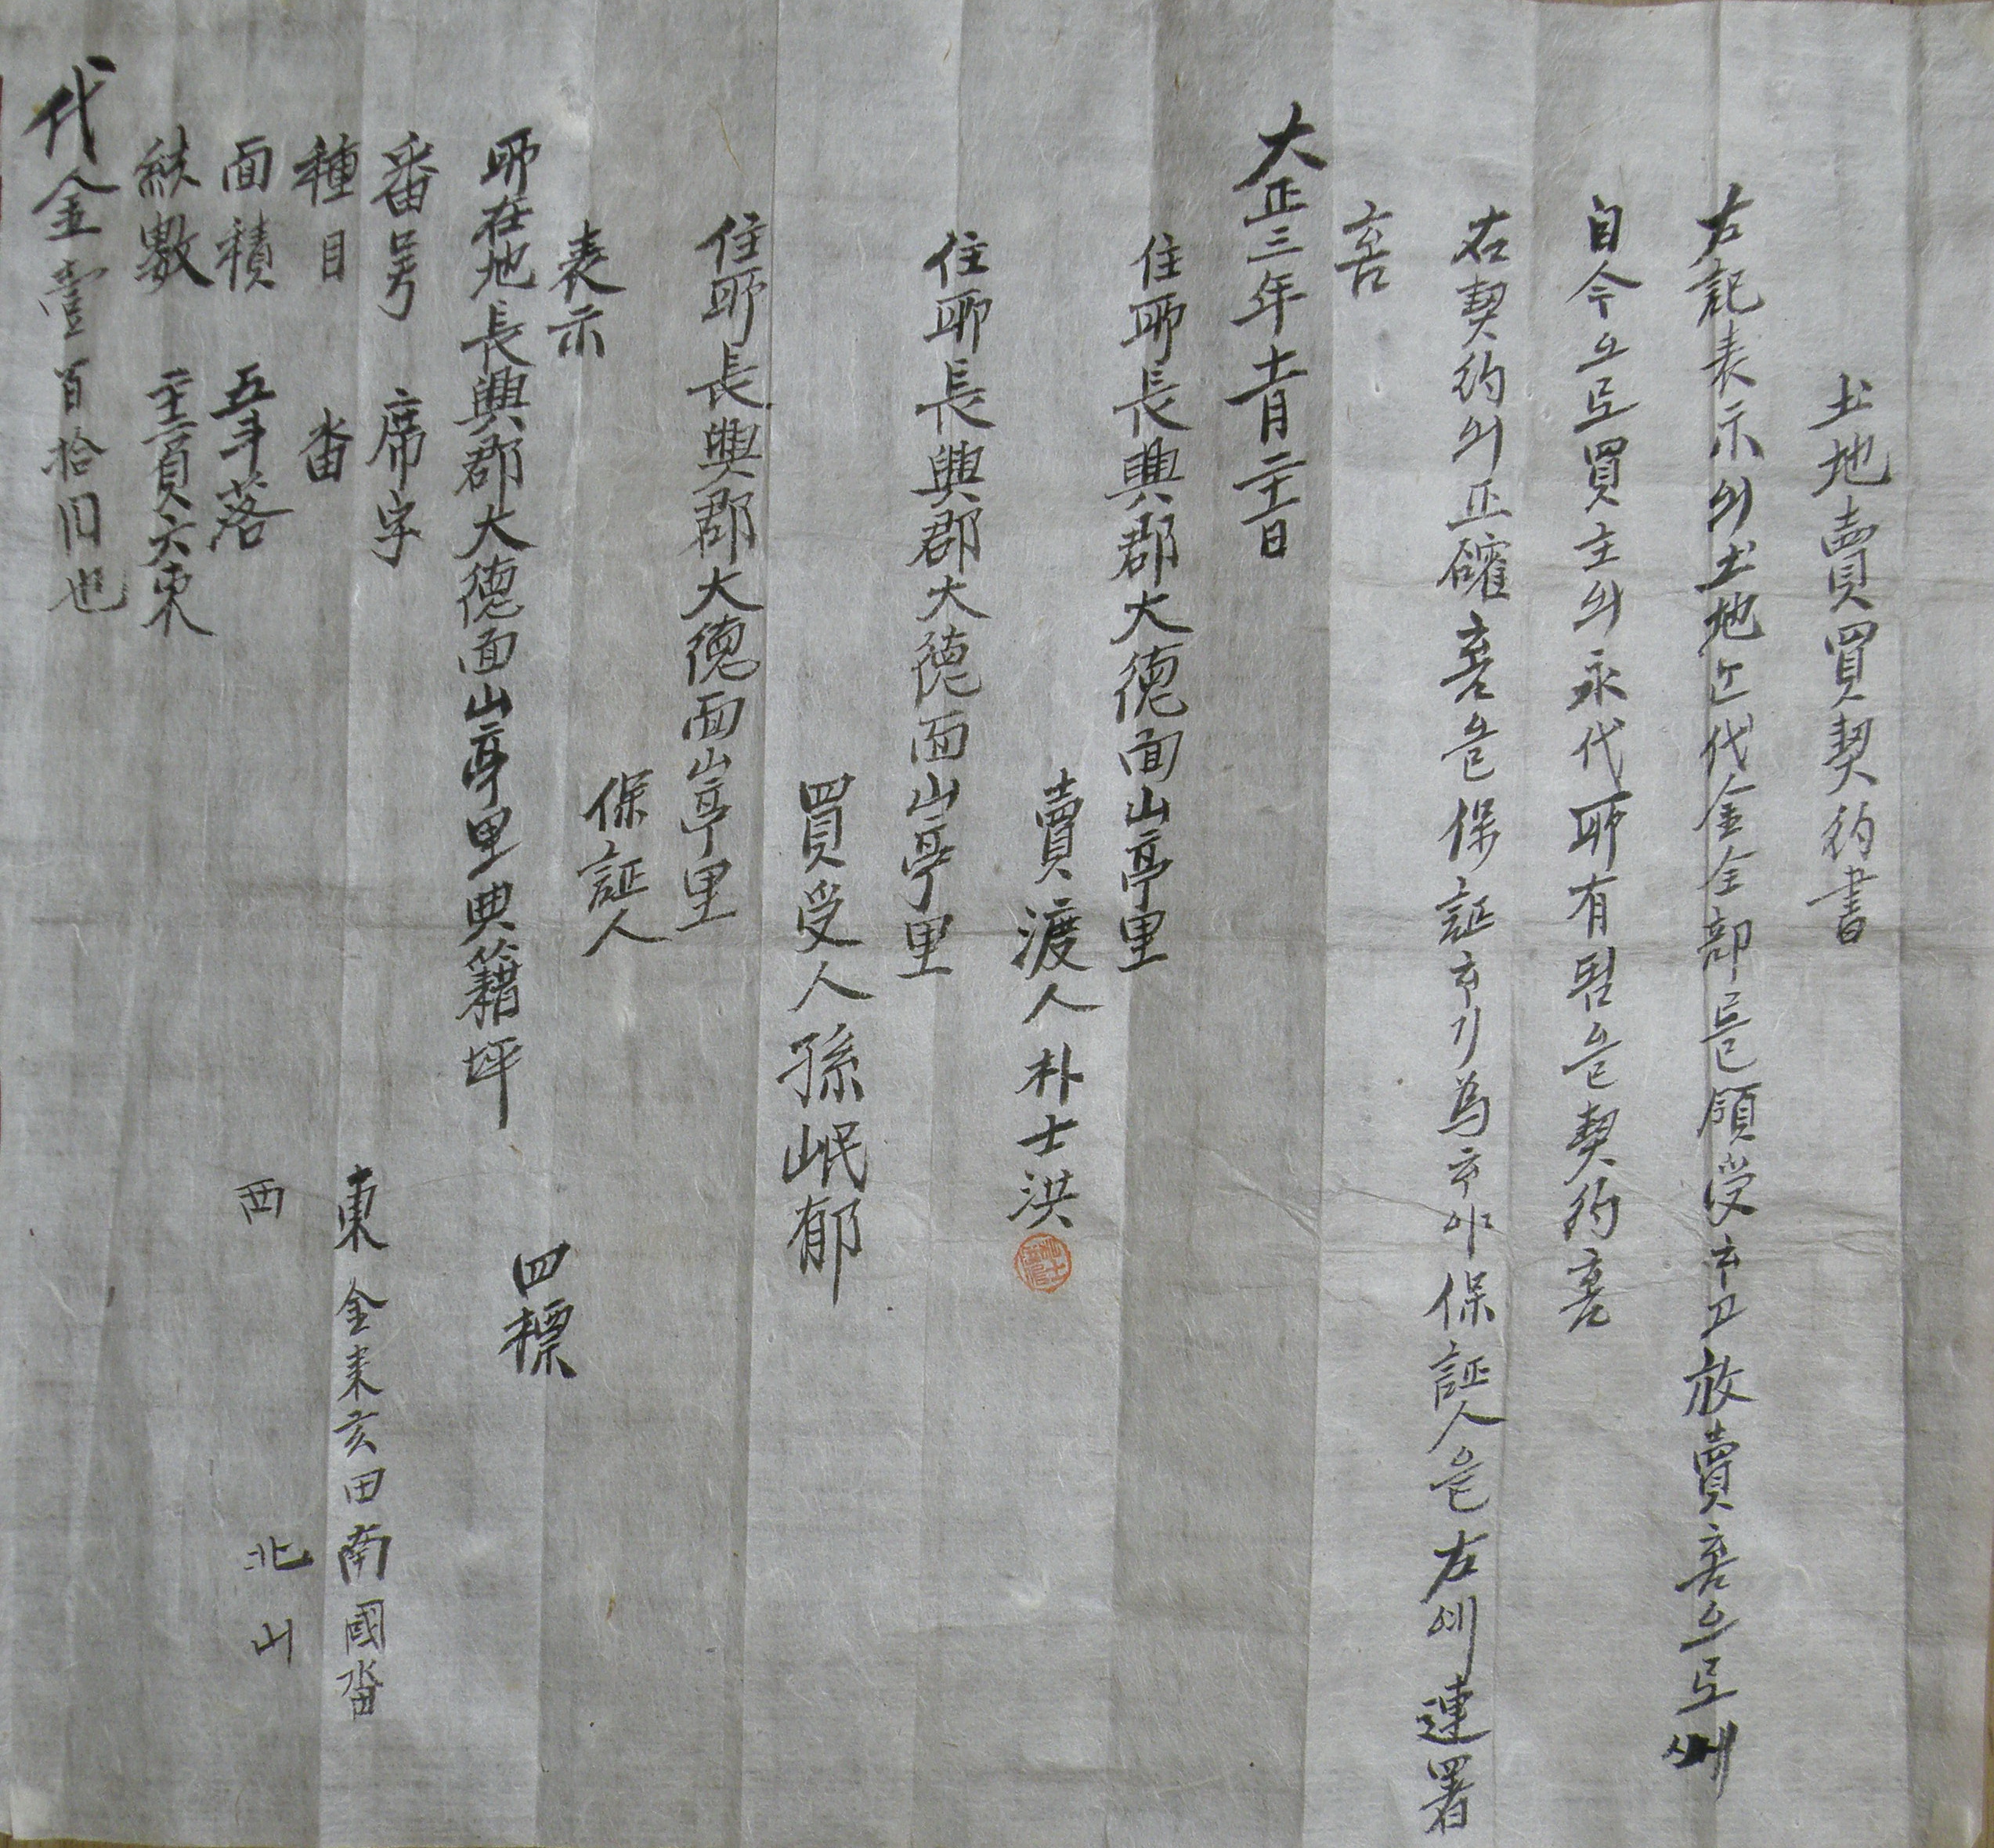 土地賣買契約書
左記表示의土地난代金全部들領受하고放賣홈으로써
自今으로買主의永代所有됨을契約홈
右契約의正確홈을保証하기爲하야保証人을左에連署
홈
大正三年十一月二十一日
住所長興郡大德面山亭里
賣渡人朴士洪
住所長興郡大德面山亭里
買受人孫岷郁
住所長興郡大德面山亭里
保証人
表示
所在地長興郡大德面山亭里典籍坪
四標
番号 席字
東 金表亥田 南 國畓
種目 畓
西 北 山
面積 五斗落
結數 十二負六束
代金壹百拾円也